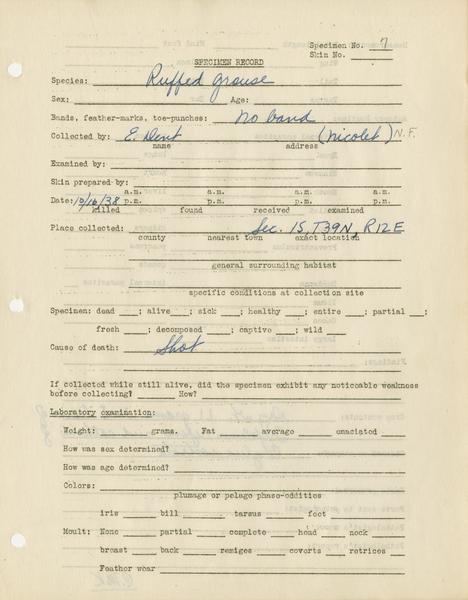 Specimen No. 7
Skin No.
SPECIMEN RECORD
Species: Ruffed Grouse
Sex: Age:
Bands, feather-marks, toe-punches: No band
Collected by: E. Dent (Nicolet) N.F.
name address
Examined by:
Skin prepared by:
a.m. a.m. a.m. a.m.
Date: 10/16/38 p.m. p.m. p.m. p.m.
killed found received examined
Place collected: Sec. 15, T39N, R12E
county nearest town exact location
general surrounding habitat
specific conditions at collection site
Specimen: dead ; alive ; sick ; healthy ; entire ; partial ;
fresh ; decomposed ; captive ; wild
Cause of death: Shot
If collected while still alive, did the specimen exhibit any noticeable weakness
before collecting? How?
Laboratory examination:
Weight: grams. Fat average emaciated
How was sex determined?
How was age determined?
Colors:
plumage or pelage phase-oddities
iris bill tarsus foot
Moult: None partial complete head neck
breast back remiges coverts retrices
Feather wear